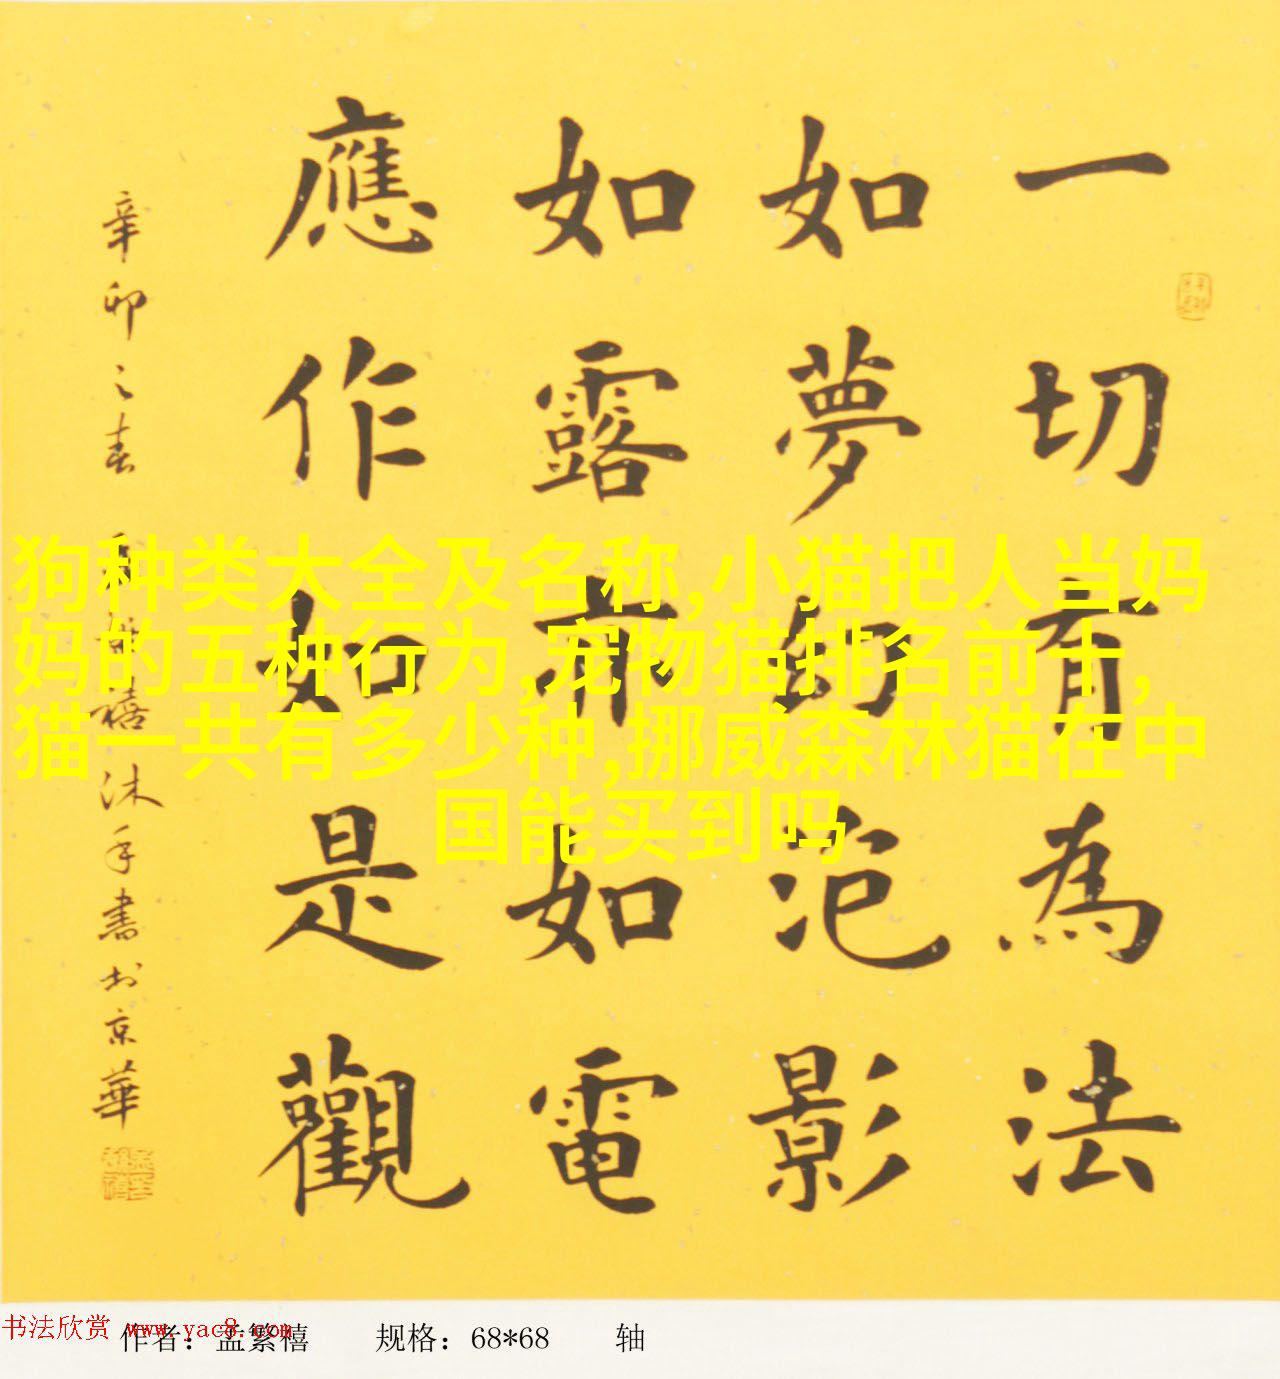 一切有為法
如夢幻泡影
如露亦如電
應作如是觀
辛卯之春 孟繁禧沐手書於京華
狗种类大全及名称,小猫把人当妈
妈的五种行为,宠物猫排名前十,
猫一共有多少种,挪威森林猫在中
国能买到吗
书法欣赏 www.yac8.com
作者：孟繁禧 规格：68*68 轴